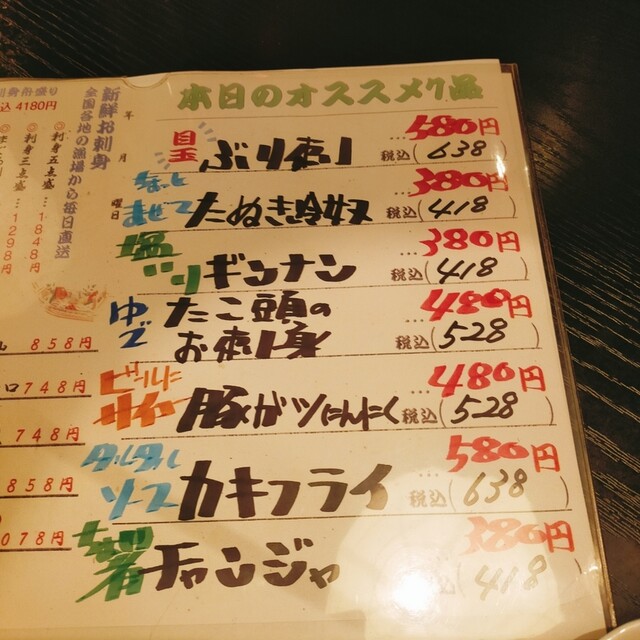 本日のオススメ7品
目玉 ぶり刺し …580円
税込(638)
さっと まぜて たぬき冷奴 …380円
税込(418)
塩 ギンナン …380円
税込(418)
ゆで たこ頭の お刺身 …480円
税込(528)
ビールに サイコー 豚ガツにんにく …480円
税込(528)
タルタル ソース カキフライ …580円
税込(638)
チャンジャ 380円
418
新鮮お刺身
全国各地の漁場から毎日直送
年 月 曜日
◎刺身五点盛…1848円
◎刺身三点盛…1298円
込 4180円
858円
748円
748円
858円
078円